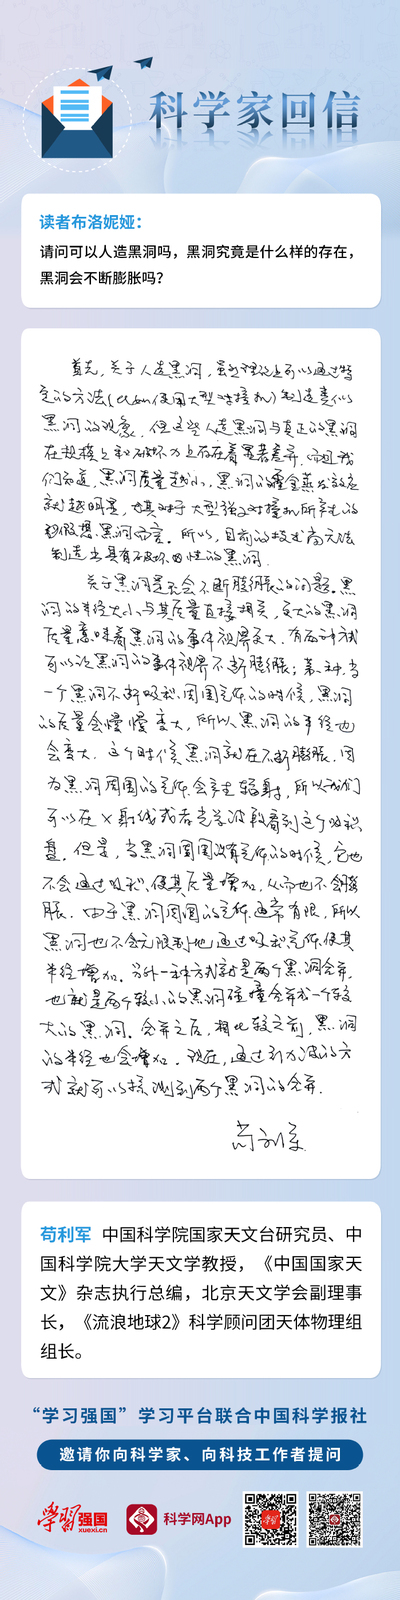 科学家回信
读者布洛妮娅：
请问可以人造黑洞吗，黑洞究竟是什么样的存在，
黑洞会不断膨胀吗？
首先，关于人造黑洞，虽然理论上可以通过特
定的方法（比如使用大型对撞机）制造类似
黑洞的现象，但这些人造黑洞与真正的黑洞
在规模上和破坏力上存在着显著差异。而且我
们知道，黑洞质量越小，黑洞的霍金蒸发效应
就越明显，尤其对于大型强子对撞机所产生的
假想黑洞而言。所以，目前的技术尚无法
制造出具有破坏性的黑洞。
关于黑洞是否会不断膨胀的问题。黑
洞的半径大小与其质量直接相关，更大的黑洞
质量意味着黑洞的事件视界更大。有两种方式
可以让黑洞的事件视界不断膨胀；第一种，当
一个黑洞不断吸积周围气体的时候，黑洞
的质量会慢慢变大，所以黑洞的半径也
会变大。这个时候黑洞就在不断膨胀。因
为黑洞周围的气体会产生辐射，所以我们
可以在X射线或者光学波段看到这个吸积
盘。但是，当黑洞周围没有气体的时候，它也
不会通过吸积，使其质量增加，从而也不会膨
胀。由于黑洞周围的气体通常有限，所以
黑洞也不会无限制地通过吸积气体使其
半径增加。另外一种方式就是两个黑洞合并，
也就是两个较小的黑洞碰撞合并成一个较
大的黑洞。合并之后，相比较之前，黑洞
的半径也会增加。现在，通过引力波的方
式就可以探测到两个黑洞的合并。
苟利军
苟利军 中国科学院国家天文台研究员、中
国科学院大学天文学教授，《中国国家天
文》杂志执行总编，北京天文学会副理事
长，《流浪地球2》科学顾问团天体物理组
组长。
“学习强国”学习平台联合中国科学报社
邀请你向科学家、向科技工作者提问
学习强国
xuexi.cn
科学网App